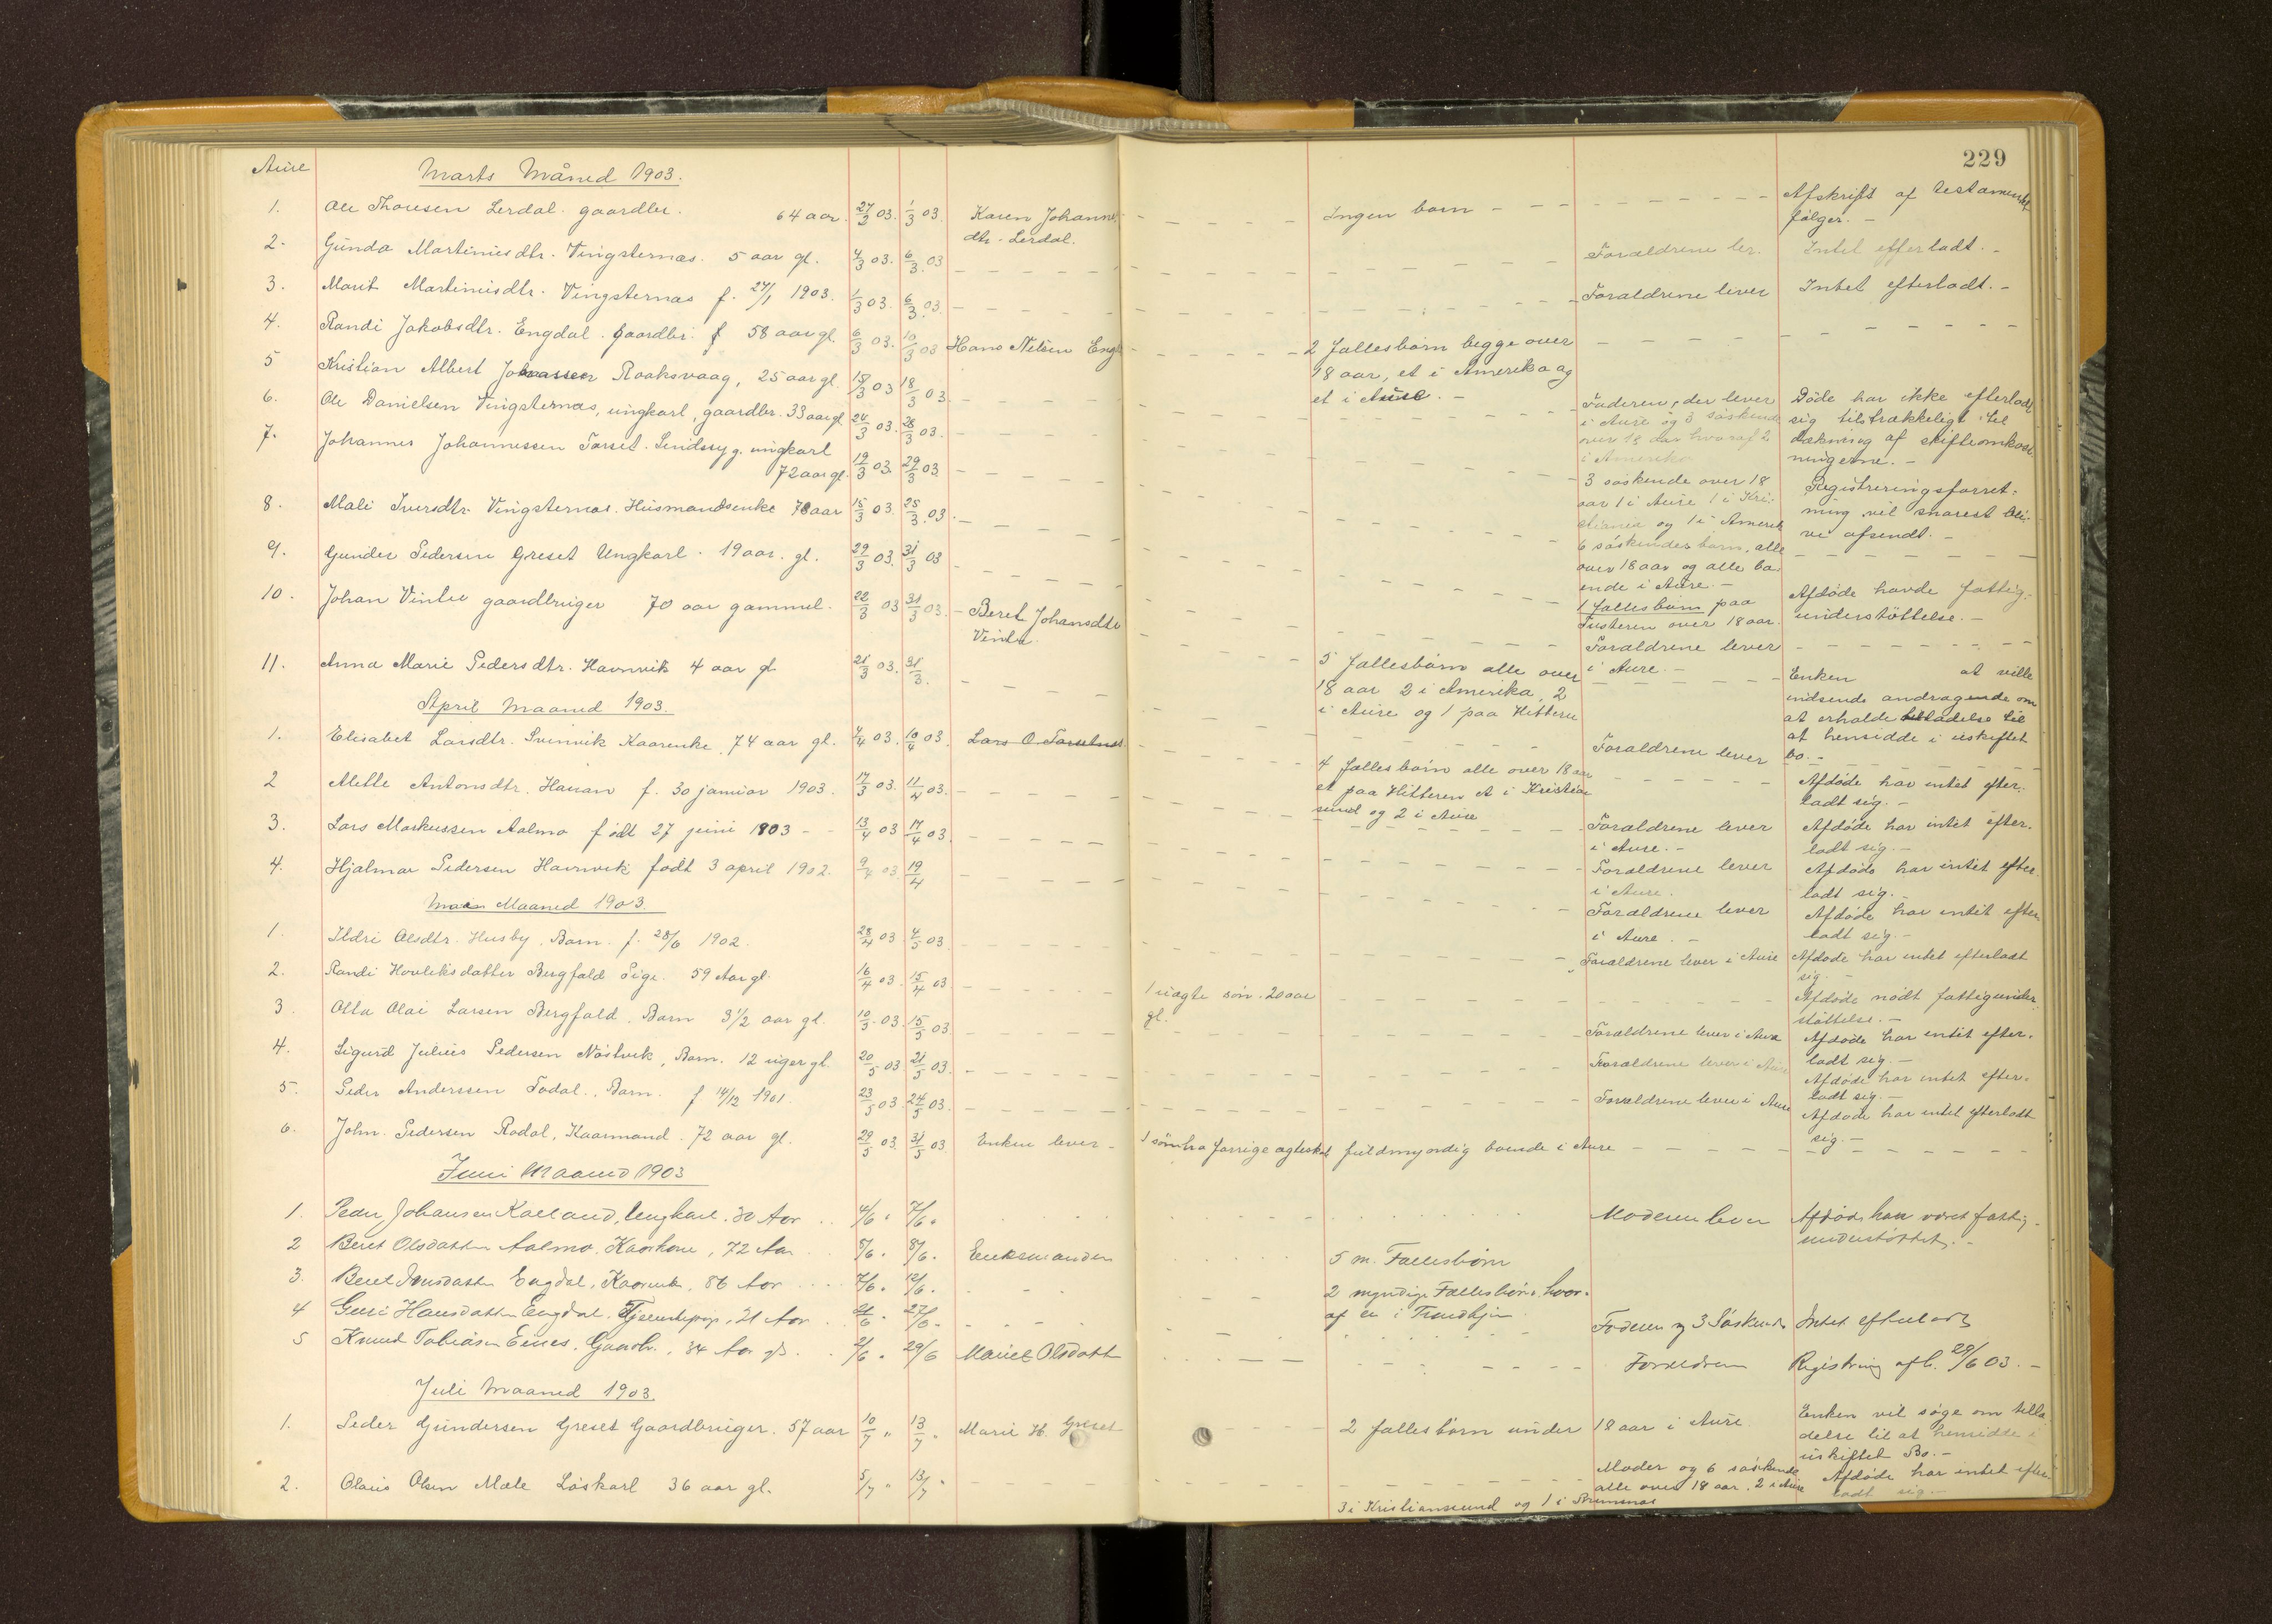 229
Aure
Marts Måned 1903.
1. Ole Thoresen Lerdal. gaardbr. 64 aar. 27/2 03. 1/3 03. Karen Johanne
dtr. Lerdal.
Ingen barn
Afskrift af testamentet
følger. -
2. Gunda Martinusdtr. Vingsternæs. 5 aar gl. 4/3 03. 6/3 03
Forældrene lev. Intet efterladt. -
3. Marit Martinusdtr. Vingsternæs f. 27/1 1903. 1/3 03. 6/3 03.
Forældrene lever Intet efterladt. -
4. Randi Jakobsdtr. Engdal. gaardbr. f 58 aar gl. 6/3 03. 10/3 03 Hans Nilsen Engd
2 fællesbørn begge over
18 aar, et i Amerika og
et i Aure. -
5 Kristian Albert Johansen Raaksvaag, 25 aar gl. 18/3 03 18/3 03
Faderen, der lever
i Aure og 3 søskende
over 18 aar hvoraf 2
i Amerika
Døde har ikke efterladt
sig tilstrækkeligt til
dækning af skifteomkost-
ningerne. -
6. Ole Danielsen Vingsternæs, ungkarl, gaardbr. 33 aar gl 24/3 03. 28/3 03.
3 søskende over 18
aar 1 i Aure 1 i Kri-
stiania og 1 i Amerik
Registreringsforret-
ning vil snarest bli-
ve afsendt. -
7. Johannes Johannessen Torset. Sindssyg. ungkarl
72 aar gl. 19/3 03 29/3 03
6 søskendes barn, alle
over 18 aar og alle bo-
ende i Aure. -
8. Mali Iversdtr. Vingsternæs. Husmandsenke 78 aar 15/3 03. 25/3 03.
1 fællesbarn paa
Tusteren over 18 aar.
Afdøde havde fattig-
understøttelse. -
9. Gunder Pedersen Greset Ungkarl. 19 aar. gl. 29/3 03. 31/3 03
Forældrene lever
i Aure. -
10. Johan Vinter gaardbruger 70 aar gammel. 22/3 03 31/3 03. - Beret Johansdtr
Vinter.
5 fællesbørn alle over
18 aar 2 i Amerika, 2
i Aure og 1 paa Hitteren
Enken at ville
indsende andragende om
at erholde tilladelse til
at hensidde i uskiftet
bo. -
11. Anna Marie Pedersdtr. Havnvik 4 aar gl 21/3 03. 31/3.
Forældrene lever
Afdøde har intet efter-
ladt sig. -
April Maaned 1903.
1. Elisabet Larsdtr. Svinvik Kaarenke, 74 aar gl. 7/4 03. 10/4 03. Lars O.
4 fællesbørn alle over 18 aar
et paa Hitteren et i Kristian
sund og 2 i Aure
2 Mette Antonsdtr. Hauan f. 30 januar 1903. 17/3 03. 11/4 03.
Forældrene lever
i Aure. -
Afdøde har intet efter-
ladt sig. -
3. Lars Markussen Aalmo født 27 juni 1903 - - 13/4 03 17/4 03.
Forældrene lever
i Aure.
Afdøde har intet efter-
ladt sig. -
4. Hjalmar Pedersen Havnvik født 3 april 1902. 9/4 03. 19/4
Forældrene lever
i Aure. -
Afdøde har intet efter
ladt sig. -
Maaned 1903.
1. Ildri Olsdtr. Husby. Barn. f. 28/6 1902. 28/4 03 4/5 03.
Forældrene lever i Aure Afdøde har intet efterladt
sig. -
2. Randi Hovleksdatter Bergfald Pige. 59 Aar gl. 16/4 03. 15/4 03
1 uægte søn. 20 aar
gl.
Afdøde nødt fattigunder
støttelse. -
3. Otta Olai Larsen Bergfald. Barn 3 1/2 aar gl. 10/5 03. 15/5 03
Forældrene lever i Aure Afdøde har intet efter-
ladt sig. -
4. Sigurd Julius Pedersen Nostvik, Barn. 12 uger gl. 20/5 03 21/5 03.
Forældrene lever i Aure Afdøde har intet efter-
ladt sig. -
5. Peder Anderssen Todal. Barn. f 14/12 1901. 23/5 03. 24/5 03.
Forældrene lever i Aure Afdøde har intet efterladt
sig. -
6. John Pedersen Rodal, Kaarmand. 72 aar gl. 29/5 03. 31/5 03. Enken lever -
1 søn fra forrige ægteskab fuldmyndig boende i Aure
Juni Maaned 1903
1. Peder Johansen Kalland, Ungkarl. 30 Aar 4/6 " 7/6 "
Moderen lever Afdøde har været fattig-
understøttet. -
2 Beret Olsdatter Aalmo. Kaarkone, 72 Aar 5/6 " 8/6 " Enkemanden
5 m. Fællesbørn
3. Beret Jonsdatter Engdal, Kaarenke, 86 Aar 7/6 " 12/6 "
2 myndige Fællesbørn. hvor-
af en i Trondhjem
4 Guri Hansdatter Engdal. Tjenestepige, 21 Aar 21/6 " 27/6 "
Faderen og 3 Søskende Intet efterladt
5 Knud Tobiasen Eines. Gaardbr., 34 Aar gl. 21/6 " 29/6 Marit Olsdatt
Forældrene Registrering afh. 29/6 03. -
Juli Maaned 1903.
1. Peder Gundersen Greset Gaardbruger. 57 aar 10/7 " 13/7 " Marie H. Greset
2 fællesbørn under 18 aar i Aure
Enken vil søge om tilla-
delse til at hensidde i
uskiftet Bo. -
2. Olaus Olsen Mæle Løskarl 36 aar gl. 5/7 " 13/7 "
Moder og 6 søskende
alle over 18 aar. 2 i Aure
3 i Kristianssund og 1 i
Afdøde har intet efter
ladt sig. -